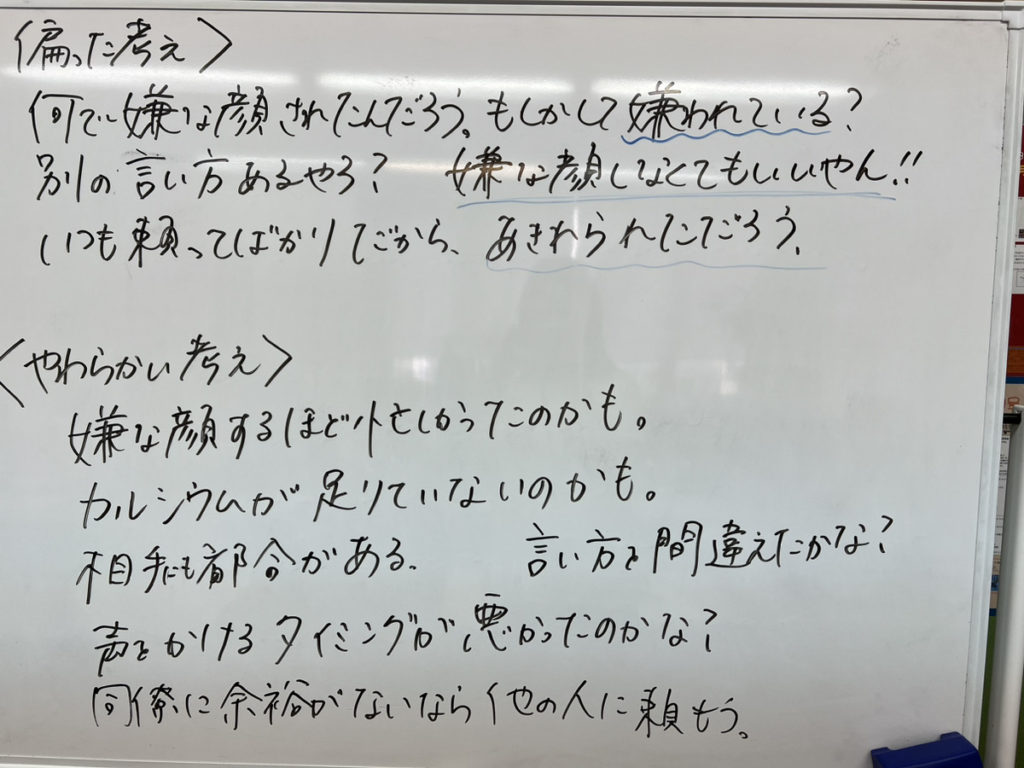 〈偏った考え〉
何で嫌な顔されたんだろう。もしかして嫌われている?
別の言い方あるやろ? 嫌な顔しなくてもいいやん!!
いつも頼ってばかりだから、あきれられたんだろう。
〈やわらかい考え〉
嫌な顔するほど忙しかったのかも。
カルシウムが足りていないのかも。
相手にも都合がある。 言い方を間違えたかな?
声をかけるタイミングが悪かったのかな?
同僚に余裕がないなら他の人に頼もう。